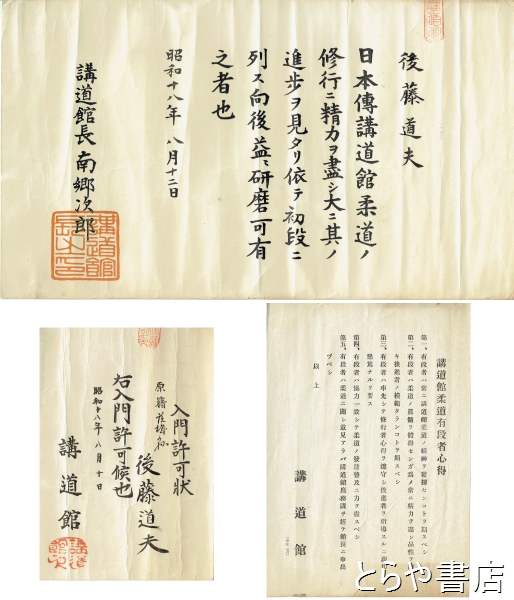 後藤道夫
日本傳講道館柔道ノ
修行ニ精力ヲ盡シ大ニ其ノ
進歩ヲ見タリ依テ初段ニ
列ス向後益〻研磨可有
之者也
昭和十八年 八月十二日
講道館長 南郷次郎
講道館
長之印
入門許可状
後藤道夫
右入門許可候也
昭和十八年 八月 十日
講道館
講道館柔道有段者心得
第一、有段者ハ常ニ講道館柔道ノ精神ヲ發揮センコトヲ期スベシ
第二、有段者ハ柔道ノ真髄ヲ體得センガ為メ常ニ精力ヲ盡シ品性ヲ
第三、有段者ハ率先シテ修行者心得ヲ遵守シ後進者ヲ指導スルニ
第四、有段者ハ協力一致シテ柔道ノ發達普及ニ力ヲ盡スベシ
第五、有段者ハ柔道ニ關シ意見アラバ講道館庶務課ヲ經テ館長ニ申出
ヅベシ
以上
講道館
とらや書店